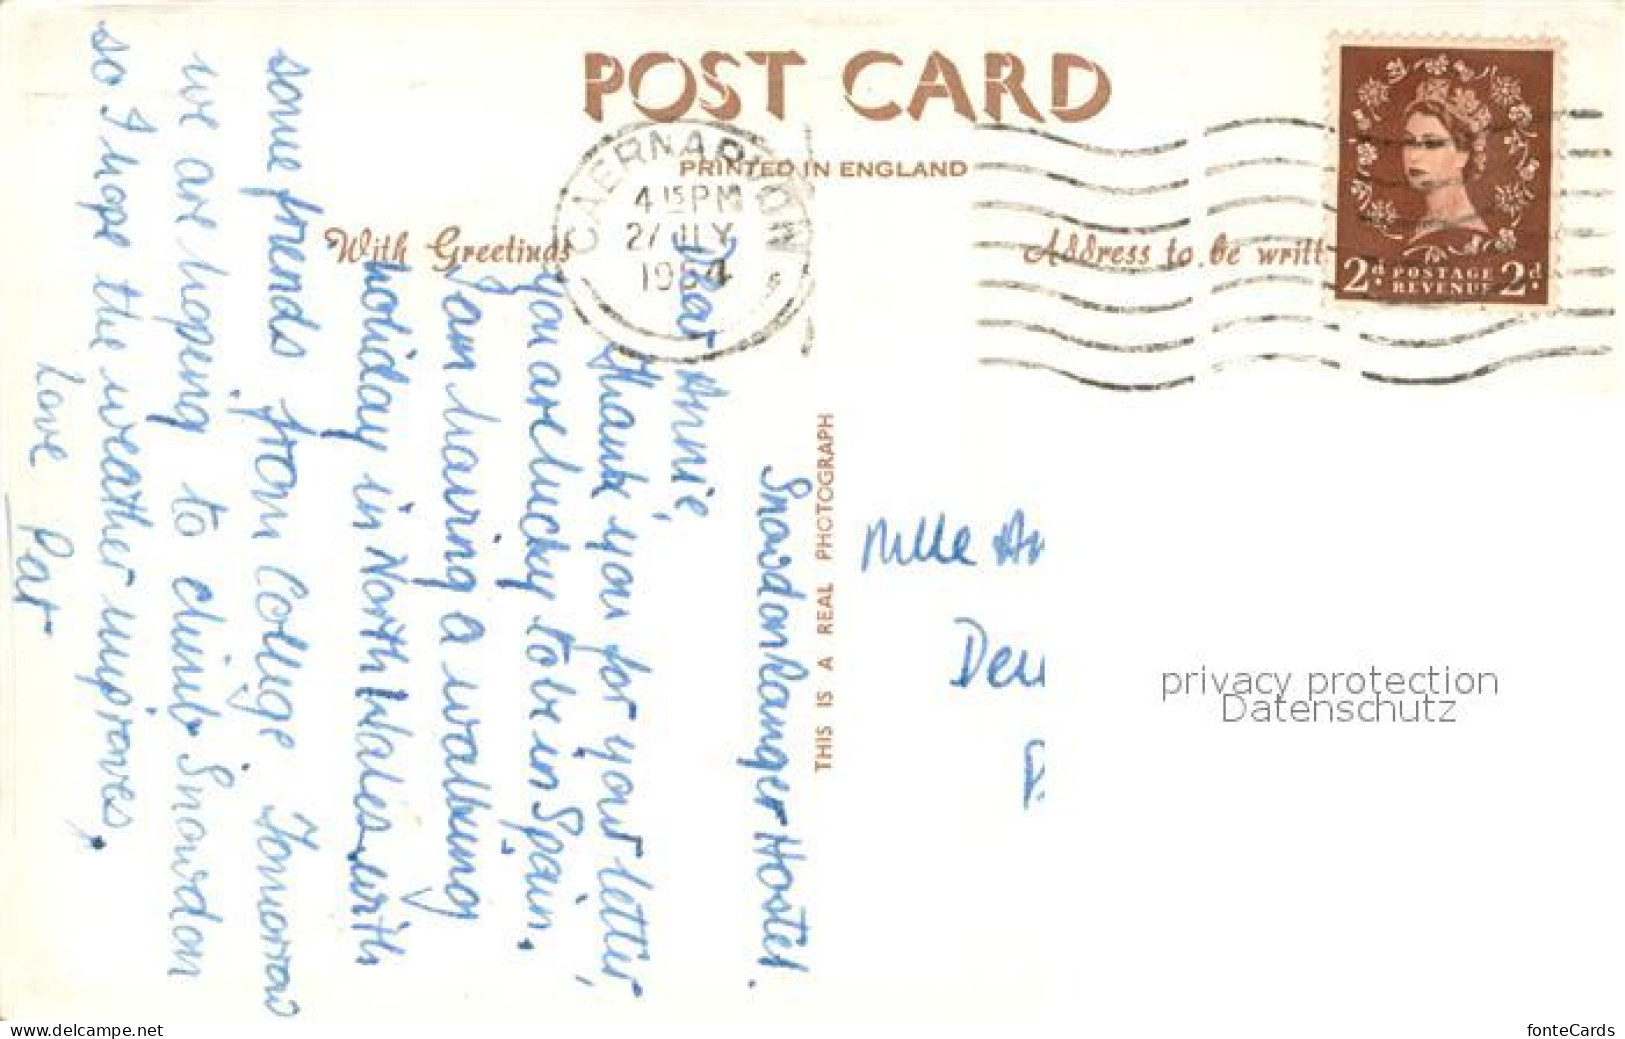 POST CARD
PRINTED IN ENGLAND
With Greetings
Address to be writt
CAERNARVON
4 15 PM
27 JLY
1964
2d POSTAGE REVENUE 2d
THIS IS A REAL PHOTOGRAPH
Snowdon Ranger Hostel.
Dear Annie,
Thank you for your letter,
you are lucky to be in Spain.
I am having a walking
holiday in North Wales with
some friends from College. Tomorrow
we are hoping to climb Snowdon
so I hope the weather improves.
Love Pat
Mlle An
privacy protection
Datenschutz
www.delcampe.net
fonteCards